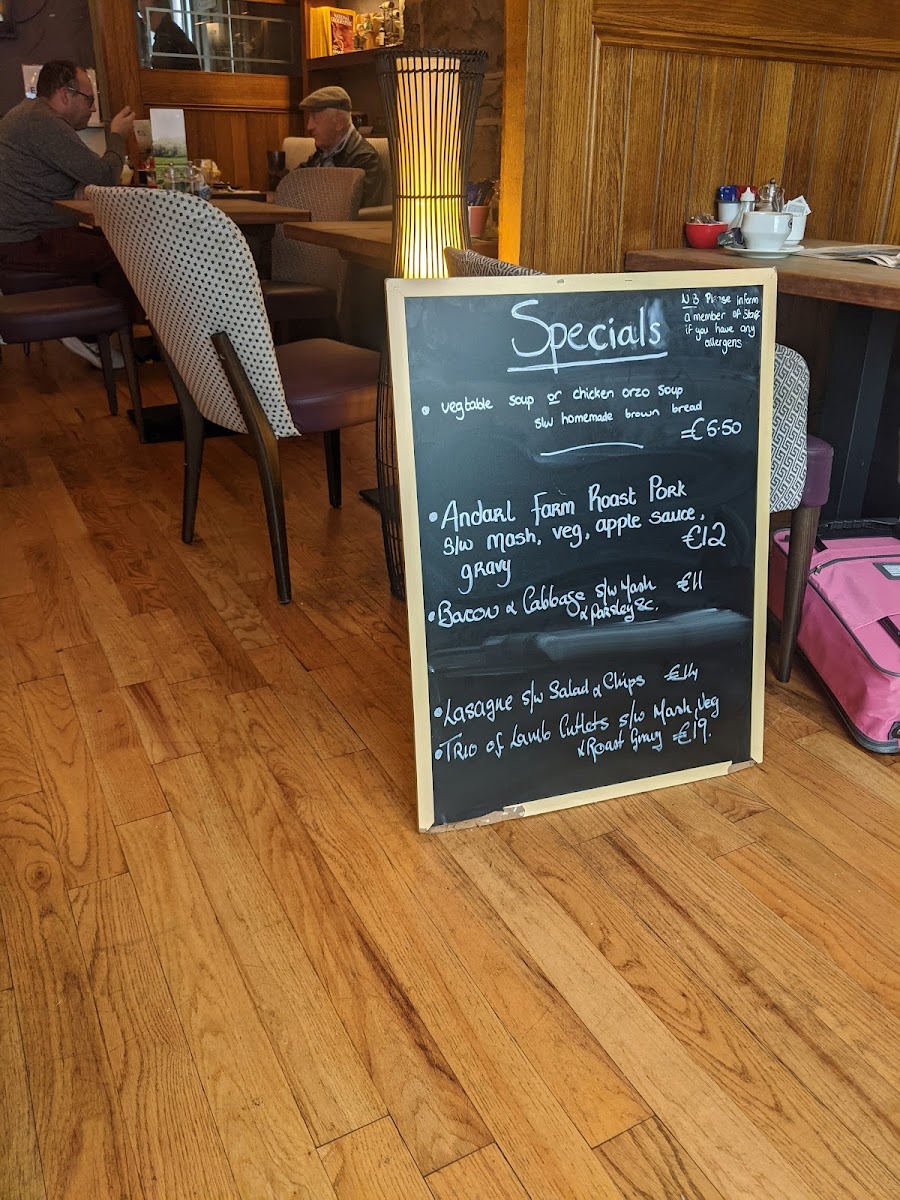 Specials
N B Please inform
a member of Staff
if you have any
allergens
vegtable soup or chicken orzo soup
s/w homemade brown bread
=€6.50
Andarl Farm Roast Pork
s/w Mash, veg, apple sauce,
€12
gravy
Bacon & Cabbage s/w Mash €11
& Parsley Sc.
Lasagne s/w Salad & Chips €14
Trio of Lamb Cutlets s/w Mash, Veg
& Roast Gravy =€19.